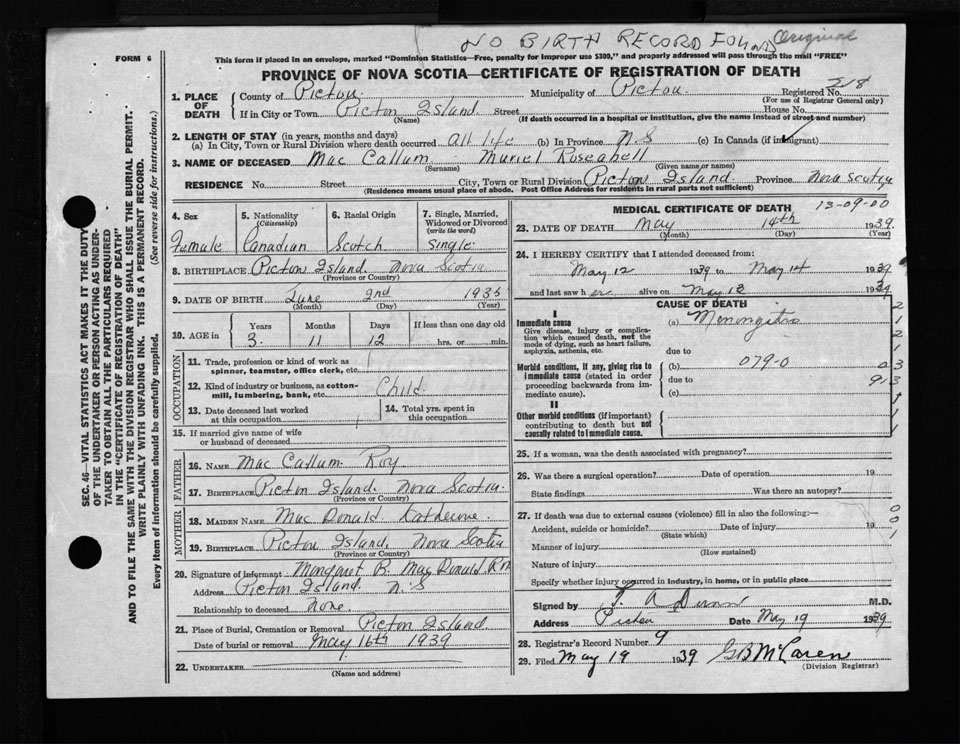 NO BIRTH RECORD FOUND Original
FORM 6
This form if placed in an envelope, marked "Dominion Statistics—Free, penalty for improper use $300," and properly addressed will pass through the mail "FREE"
PROVINCE OF NOVA SCOTIA—CERTIFICATE OF REGISTRATION OF DEATH
1. PLACE OF DEATH
County of Pictou Municipality of Pictou Registered No. 518
(For use of Registrar General only)
If in City or Town Pictou Island. Street House No.
(Name) (If death occurred in a hospital or institution, give the name instead of street and number)
2. LENGTH OF STAY (in years, months and days)
(a) In City, Town or Rural Division where death occurred all life (b) In Province N.S (c) In Canada (if immigrant)
3. NAME OF DECEASED Mac Callum Muriel Roseabell
(Surname) (Given name or names)
RESIDENCE No. Street City, Town or Rural Division Pictou Island. Province Nova Scotia
(Residence means usual place of abode. Post Office Address for residents in rural parts not sufficient)
4. Sex
Female
5. Nationality
(Citizenship)
Canadian
6. Racial Origin
Scotch
7. Single, Married, Widowed or Divorced
(write the word)
Single
8. BIRTHPLACE Pictou Island. Nova Scotia
(Province or Country)
9. DATE OF BIRTH June 2nd 1935
(Month) (Day) (Year)
10. AGE in
Years Months Days If less than one day old
3. 11 12 hrs. or min.
OCCUPATION
11. Trade, profession or kind of work as
spinner, teamster, office clerk, etc.
12. Kind of industry or business, as cotton-
mill, lumbering, bank, etc. Child
13. Date deceased last worked
at this occupation
14. Total yrs. spent in
this occupation
15. If married give name of wife
or husband of deceased
FATHER
16. NAME Mac Callum Roy
17. BIRTHPLACE Pictou Island. Nova Scotia.
(Province or Country)
MOTHER
18. MAIDEN NAME Mac Donald Katherine.
19. BIRTHPLACE Pictou Island. Nova Scotia
(Province or Country)
20. Signature of informant Margaret B. MacDonald R.N
Address Pictou Island. N.S
Relationship to deceased None.
21. Place of Burial, Cremation or Removal Pictou Island
Date of burial or removal May 16th 1939
22. UNDERTAKER
(Name and address)
MEDICAL CERTIFICATE OF DEATH 13-09-00
23. DATE OF DEATH May 14th 1939
(Month) (Day) (Year)
24. I HEREBY CERTIFY that I attended deceased from:
May 12 1939 to May 14 1939
and last saw her alive on May 12 1939
CAUSE OF DEATH
I
Immediate cause
Give disease, injury or complica-
tion which caused death, not the
mode of dying, such as heart failure,
asphyxia, asthenia, etc.
(a) Meningitis
due to
Morbid conditions, if any, giving rise to
immediate cause (stated in order
proceeding backwards from im-
mediate cause).
(b) 079-0
due to
(c)
II
Other morbid conditions (if important)
contributing to death but not
causally related to immediate cause.
25. If a woman, was the death associated with pregnancy?
26. Was there a surgical operation? Date of operation 19
State findings Was there an autopsy?
27. If death was due to external causes (violence) fill in also the following:—
Accident, suicide or homicide? Date of injury 19
(State which)
Manner of injury
(How sustained)
Nature of injury
Specify whether injury occurred in industry, in home, or in public place
Signed by M.D.
Address Pictou Date May 19 1939
28. Registrar's Record Number 9
29. Filed May 19 1939 GB McLaren
(Division Registrar)
SEC. 46—VITAL STATISTICS ACT MAKES IT THE DUTY
OF THE UNDERTAKER OR PERSON ACTING AS UNDER-
TAKER TO OBTAIN ALL THE PARTICULARS REQUIRED
IN THE "CERTIFICATE OF REGISTRATION OF DEATH"
AND TO FILE THE SAME WITH THE DIVISION REGISTRAR WHO SHALL ISSUE THE BURIAL PERMIT.
WRITE PLAINLY WITH UNFADING INK. THIS IS A PERMANENT RECORD.
Every item of information should be carefully supplied. (See reverse side for instructions.)